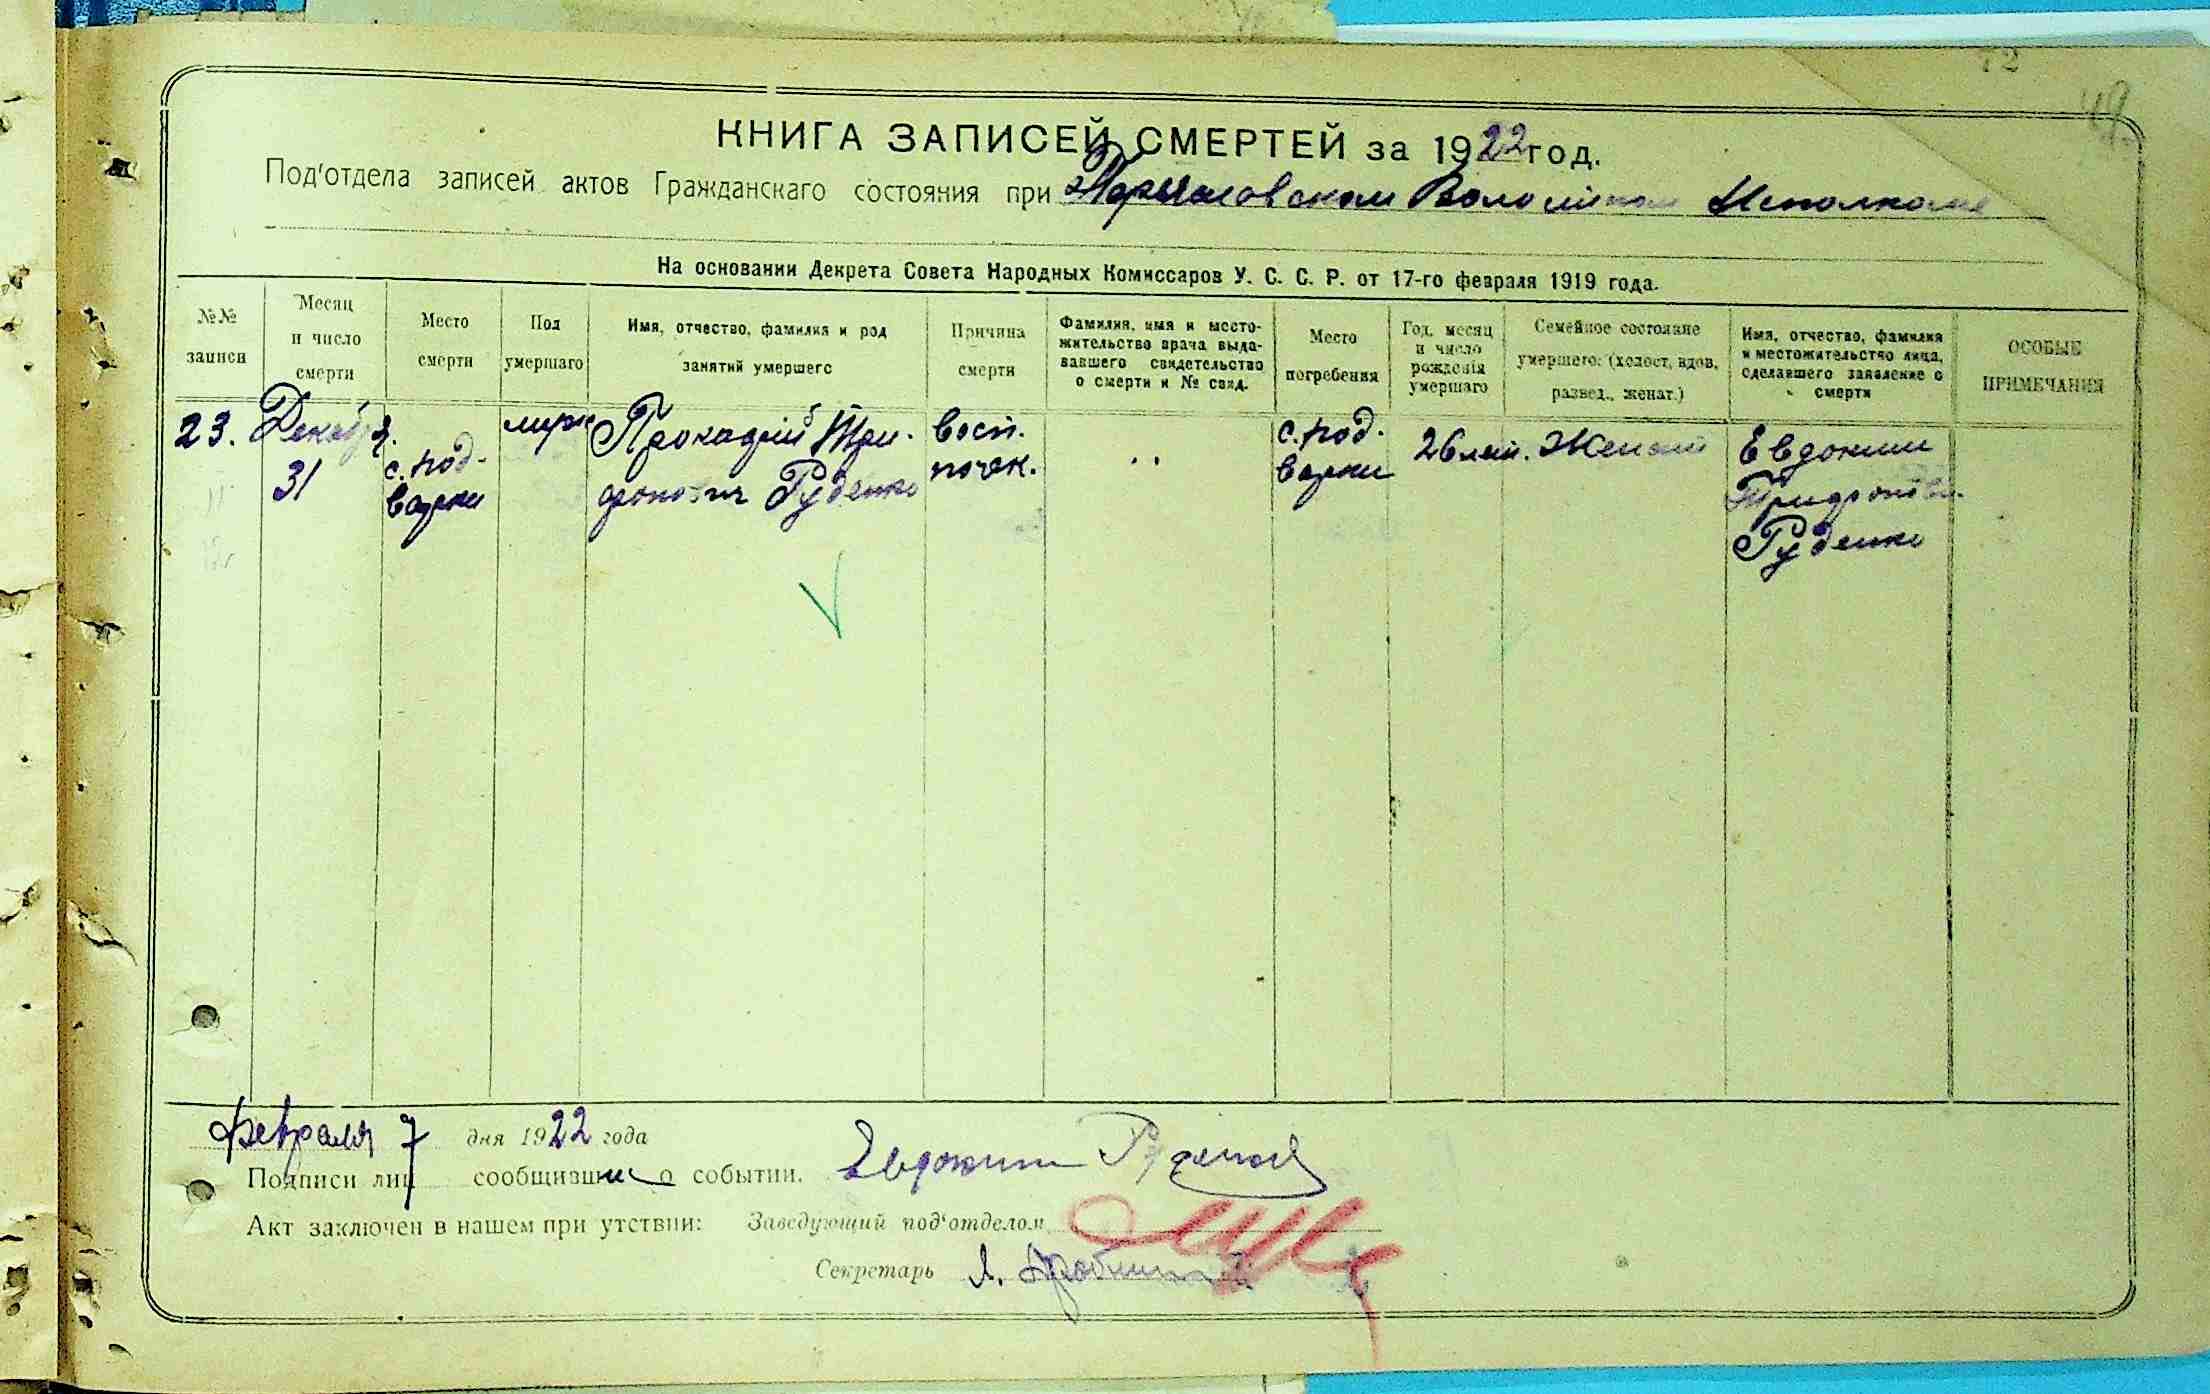 72
49
КНИГА ЗАПИСЕЙ СМЕРТЕЙ за 1922 год.
Под'отдела записей актов Гражданскаго состояния при Волостном Исполкоме
На основании Декрета Совета Народных Комиссаров У. С. С. Р. от 17-го февраля 1919 года.
№№ записи
Месяц и число смерти
Место смерти
Пол умершаго
Имя, отчество, фамилия и род занятий умершего
Причина смерти
Фамилия, имя и место-
жительство врача выда-
вавшего свидетельство
о смерти и № свид.
Место погребения
Год, месяц
и число
рождения
умершаго
Семейное состояние
умершего: (холост, вдов,
развед., женат.)
Имя, отчество, фамилия
и местожительство лица,
сделавшего заявление о
смерти
ОСОБЫЕ
ПРИМЕЧАНИЯ
23.
Декабря
31
с. Под-
варки
муж
Три-
фонович Руденко
Восп.
почек.
с. Под-
варки
26 лет.
Женат
Евдокии
Трифонов.
Руденко
февраля 7 дня 1922 года
Подписи лиц сообщивши о событии. Евдокии Руденко
Акт заключен в нашем при утствии: Заведующий под'отделом
Секретарь